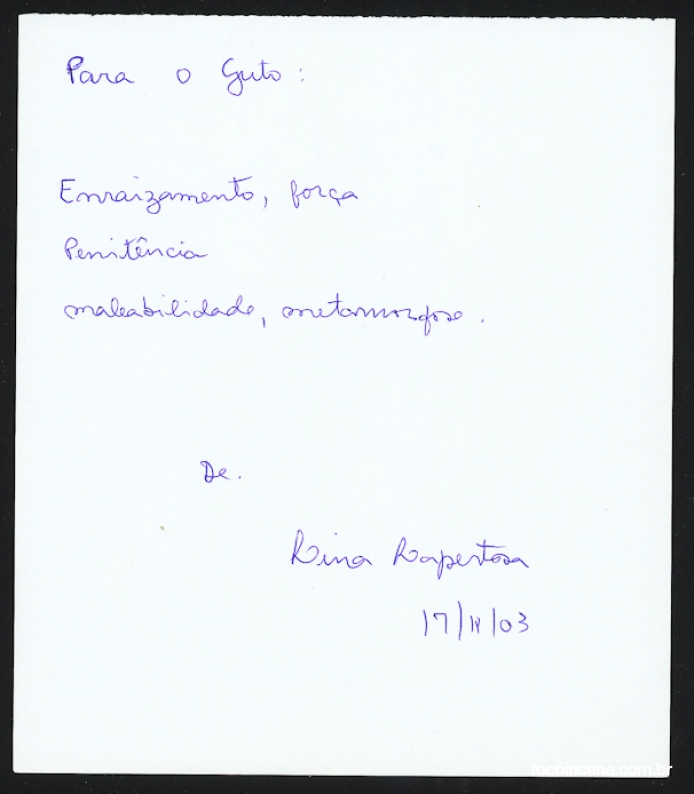 Para o Guto:
Enraizamento, força
Penitência
maleabilidade, metamorfose.
De.
Lina Lapertosa
17/11/03
focoincena.com.br